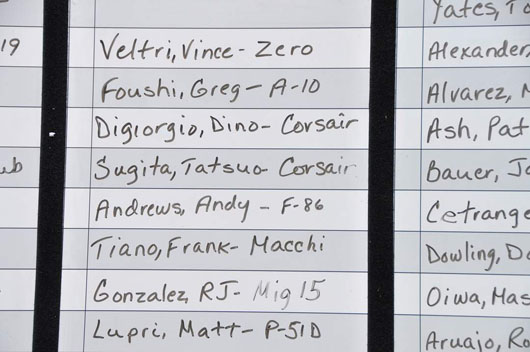 19
ub
Veltri, Vince - Zero
Foushi, Greg - A-10
Digiorgio, Dino - Corsair
Sugita, Tatsuo - Corsair
Andrews, Andy - F-86
Tiano, Frank - Macchi
Gonzalez, RJ - Mig 15
Lupri, Matt - P-51D
Yates, To
Alexander,
Alvarez, M
Ash, Pat
Bauer, Jo
Cetrange
Dowling, Do
Oiwa, Mas
Aruajo, Ro